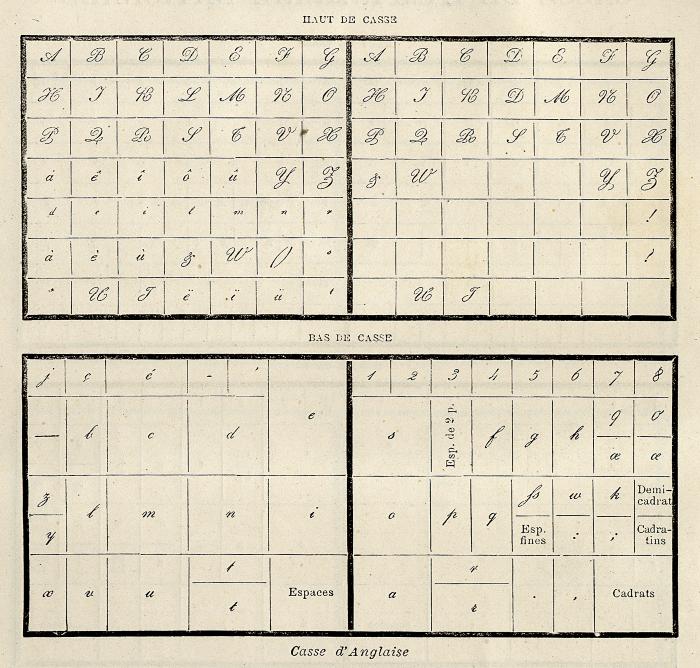 HAUT DE CASSE
A B C D E F G A B C D E F G
H I K L M N O H I K D M N O
P Q R S T V X P Q R S T V X
â ê î ô û Y Z & W Y Z
d e i l m n r !
à è ù & W () o ?
* U J ë ï ü ' U J
BAS DE CASSE
j ç é - ' e 1 2 3 4 5 6 7 8
— b c d s Esp. de 2 p. f g h 9 0
æ œ
z y l m n i o p q fs w k Demi-cadrat
Esp. fines : ; Cadra-tins
x v u t Espaces a r . , Cadrats
t r
Casse d'Anglaise